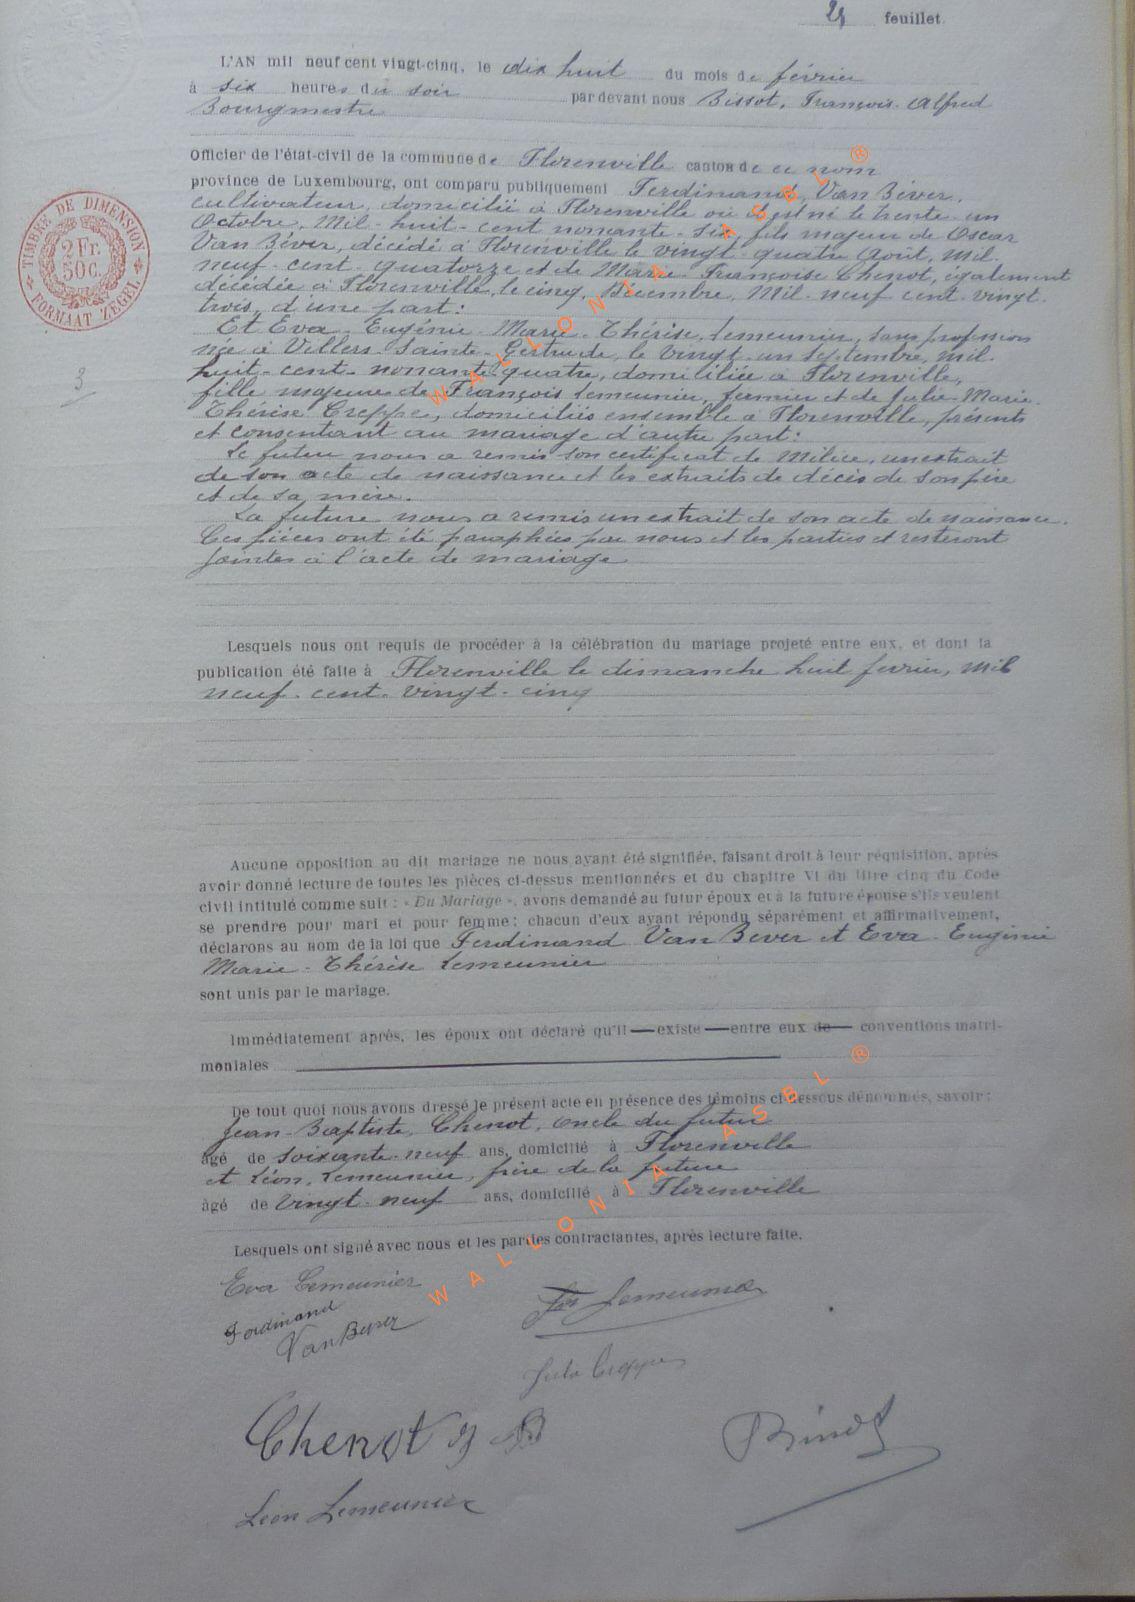 feuillet.
L'AN mil neuf cent vingt-cinq, le dix huit du mois de février
à six heures du soir par devant nous Bissot, François-Alfred
Bourgmestre
Officier de l'état-civil de la commune de Florenville canton de ce nom
province de Luxembourg, ont comparu publiquement Ferdinand, Van Béver,
cultivateur, domicilié à Florenville où il est né le trente-un
Octobre, Mil-huit-cent nonante-six, fils majeur de Oscar
Van Béver, décédé à Florenville le vingt-quatre Août, mil-
neuf-cent-quatorze et de Marie-Françoise Chenot, également
décédée à Florenville, le cinq, Décembre, Mil-neuf cent-vingt-
trois, d'une part:
Et Eva-Eugénie-Marie-Thérèse, Lemeunier, sans profession
née à Villers-Sainte-Gertrude, le vingt-un Septembre, mil-
huit-cent-nonante-quatre, domiciliée à Florenville,
fille majeure de François Lemeunier, fermier et de Julie-Marie-
Thérèse Creppe, domiciliés ensemble à Florenville, présents
et consentant au mariage d'autre part:
Le futur nous a remis son certificat de Milice, un extrait
de son acte de naissance et les extraits de décès de son père
et de sa mère.
La future nous a remis un extrait de son acte de naissance.
Ces pièces ont été paraphées par nous et les parties et resteront
jointes à l'acte de mariage
TIMBRE DE DIMENSION
2 Fr.
50 C.
FORMAAT ZEGEL
3
Lesquels nous ont requis de procéder à la célébration du mariage projeté entre eux, et dont la
publication été faite à Florenville le dimanche huit février, Mil
neuf-cent-vingt-cinq
Aucune opposition au dit mariage ne nous ayant été signifiée, faisant droit à leur réquisition, après
avoir donné lecture de toutes les pièces ci-dessus mentionnées et du chapitre VI du titre cinq du Code
civil intitulé comme suit : « Du Mariage », avons demandé au futur époux et à la future épouse s'ils veulent
se prendre pour mari et pour femme; chacun d'eux ayant répondu séparément et affirmativement,
déclarons au nom de la loi que Ferdinand Van Bever et Eva-Eugénie
Marie-Thérèse Lemeunier
sont unis par le mariage.
Immédiatement après, les époux ont déclaré qu'il — existe — entre eux de conventions matri-
moniales
De tout quoi nous avons dressé le présent acte en présence des témoins ci-dessous dénommés, savoir:
Jean-Baptiste, Chenot, oncle du futur
âgé de soixante-neuf ans, domicilié à Florenville
et Léon, Lemeunier, frère de la future
âgé de vingt-neuf ans, domicilié à Florenville
Lesquels ont signé avec nous et les parties contractantes, après lecture faite.
Eva Lemeunier
Lemeunier
Ferdinand
Van Bever
Chenot
Léon Lemeunier
WALLONIA ASBL ®
WALLONIA ASBL ®